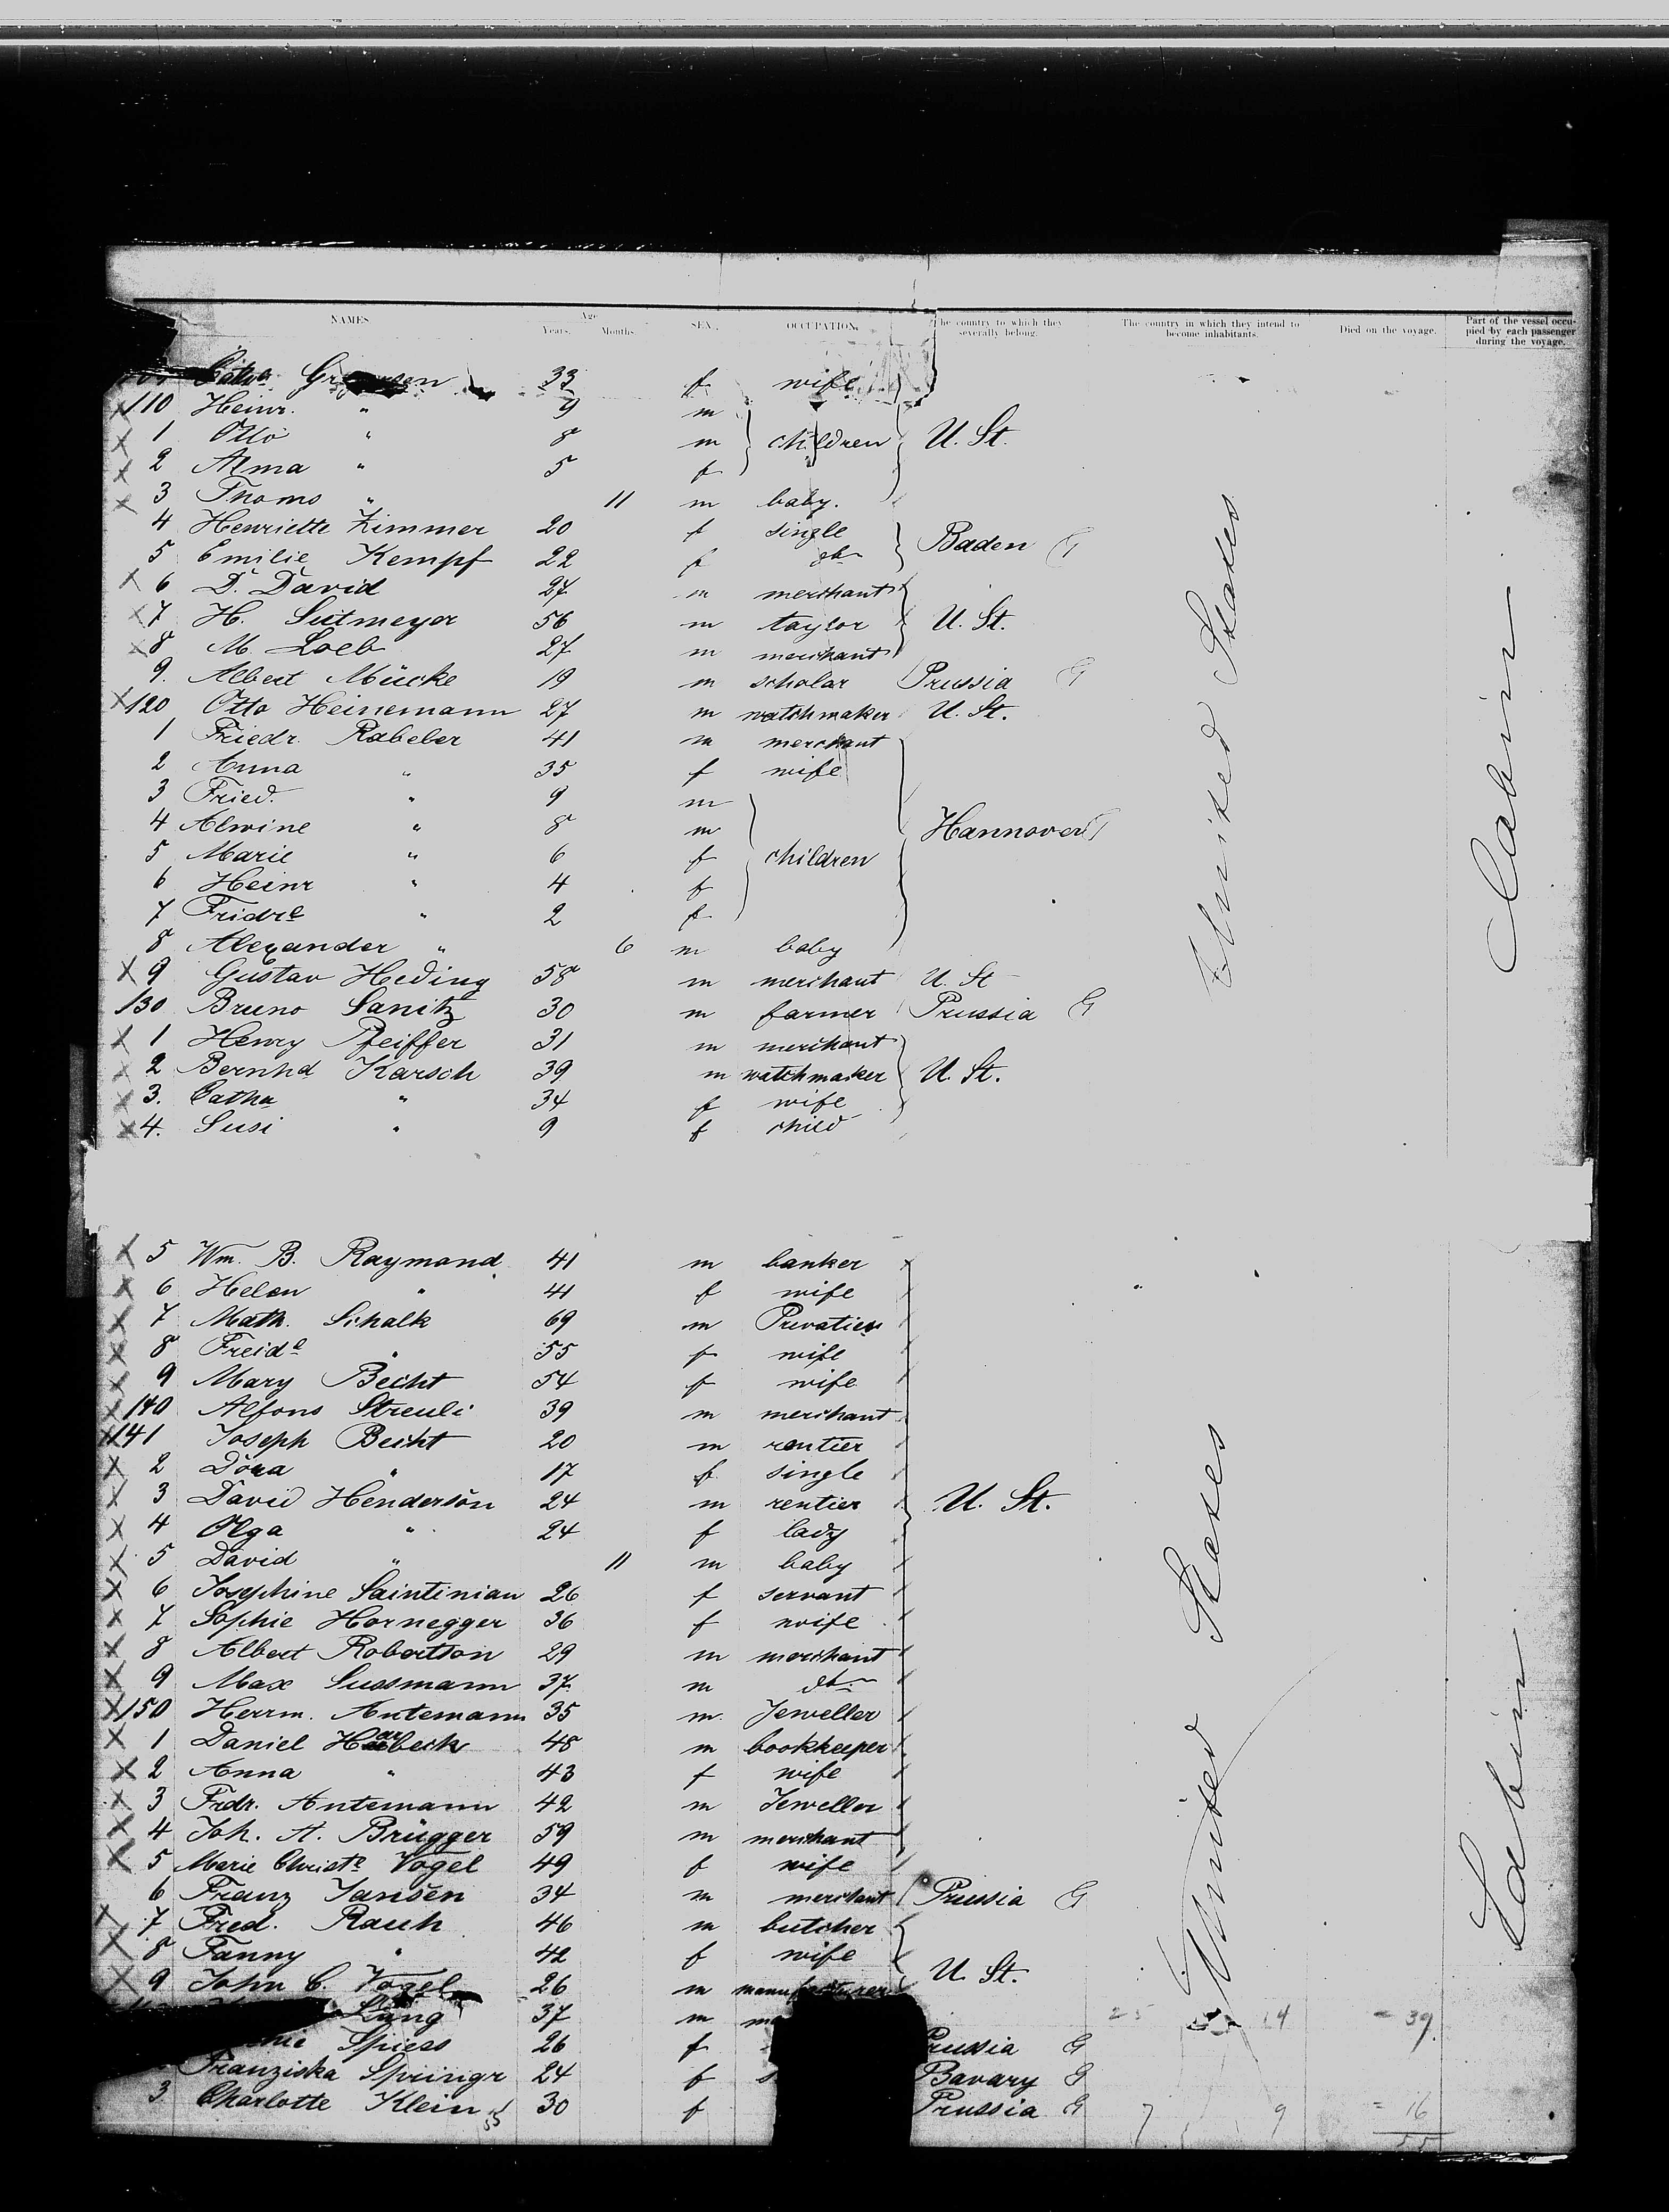 NAMES. Age Years. Months. SEX. OCCUPATION. The country to which they severally belong. The country in which they intend to become inhabitants. Died on the voyage. Part of the vessel occupied by each passenger during the voyage.
33 f wife
X 110 Heinr. " 9 m
X 1 Otto " 8 m children U. St.
X 2 Alma " 5 f
X 3 Thoms " 11 m baby.
4 Henriette Zimmer 20 f single
5 Emilie Kempf 22 f do Baden G
X 6 D. David 27 m merchant
X 7 H. Sutmeyer 56 m taylor U. St.
X 8 M. Loeb 27 m merchant
9. Albert Mücke 19 m scholar Prussia G
X 120 Otto Heinemann 27 m watchmaker U. St.
1 Friedr. Rabeler 41 m merchant
2 Anna " 35 f wife
3 Fried. " 9 m
4 Alwine " 8 m Hannover G
5 Marie " 6 f children
6 Heinr " 4 f
7 Fridre " 2 f
8 Alexander " 6 m baby
X 9 Gustav Heding 58 m merchant U. St
130 Bruno Sanitz 30 m farmer Prussia G
X 1 Henry Pfeiffer 31 m merchant
X 2 Bernhd Karsch 39 m watchmaker U. St.
X 3. Catha " 34 f wife
X 4. Susi " 9 f child
United States
Cabin
X 5 Wm. B. Raymond 41 m banker
X 6 Helen " 41 f wife
X 7 Math. Schalk 69 m Privatier
X 8 Freide " 55 f wife
X 9 Mary Becht 54 f wife
X 140 Alfons Streuli 39 m merchant
X 141 Joseph Becht 20 m rentier
X 2 Dora " 17 f single
X 3 David Henderson 24 m rentier U. St.
X 4 Olga " 24 f lady
X 5 David " 11 m baby
X 6 Josephine Saintinian 26 f servant
X 7 Sophie Hornegger 36 f wife
X 8 Albert Robertson 29 m merchant
X 9 Max Sussmann 37 m do
X 150 Herrm. Antemann 35 m. Jeweller
X 1 Daniel 48 m bookkeeper
X 2 Anna " 43 f wife
X 3 Frdr. Antemann 42 m Jeweller
X 4 Joh. A. Brügger 59 m merchant
X 5 Marie Christe Vogel 49 f wife
6 Franz Jansen 34 m merchant Prussia G
X 7 Fred. Rauh 46 m butcher
X 8 Fanny " 42 f wife
X 9 John C. Vogel 26 m manufacturer U. St.
Lang 37 m 25 14 = 39
Spiess 26 f Prussia G
Franziska Springr 24 f Bavary G
3. Charlotte Klein 30 f Prussia G 7 9 = 16
55
United States
Cabin